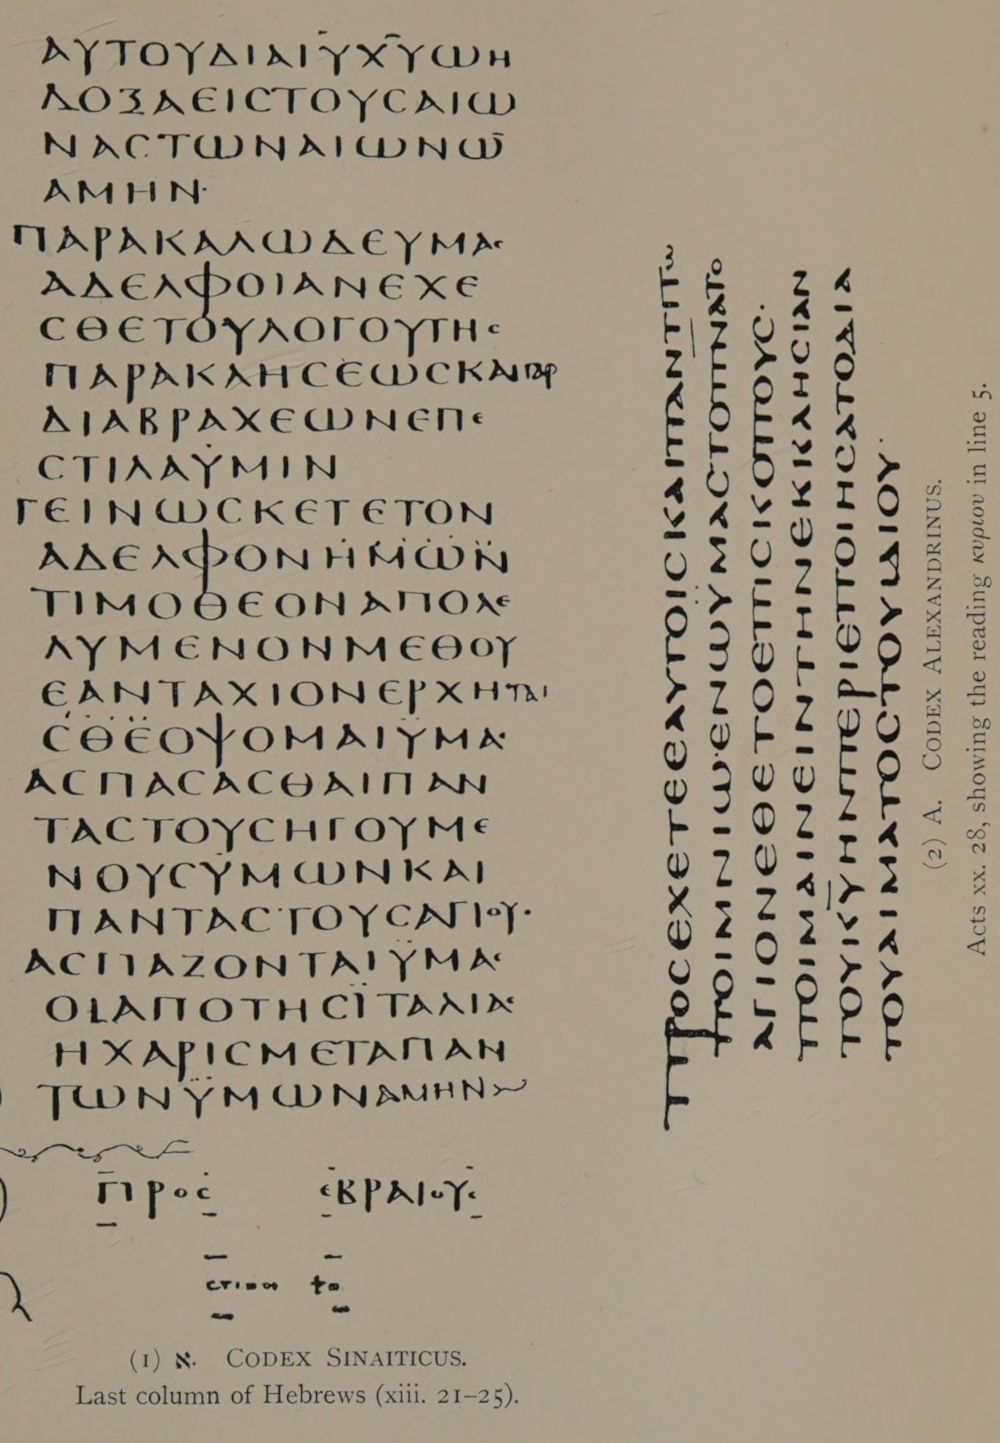 ΑΥΤΟΥΔΙΑΙ̅Υ̅Χ̅Υ̅ΩΗ
ΔΟΞΑΕΙϹΤΟΥϹΑΙΩ
ΝΑϹΤΩΝΑΙΩΝΩ̅
ΑΜΗΝ·
ΠΑΡΑΚΑΛΩΔΕΥΜΑϹ
ΑΔΕΛΦΟΙΑΝΕΧΕ
ϹΘΕΤΟΥΛΟΓΟΥΤΗϹ
ΠΑΡΑΚΛΗϹΕΩϹΚΑΙΓΑΡ
ΔΙΑΒΡΑΧΕΩΝΕΠΕ
ϹΤΙΛΑΫΜΙΝ
ΓΕΙΝΩϹΚΕΤΕΤΟΝ
ΑΔΕΛΦΟΝΗΜΩΝ
ΤΙΜΟΘΕΟΝΑΠΟΛΕ
ΛΥΜΕΝΟΝΜΕΘΟΥ
ΕΑΝΤΑΧΙΟΝΕΡΧΗΤΑΙ
ϹΘΕΟΨΟΜΑΙΫΜΑϹ
ΑϹΠΑϹΑϹΘΑΙΠΑΝ
ΤΑϹΤΟΥϹΗΓΟΥΜΕ
ΝΟΥϹΫΜΩΝΚΑΙ
ΠΑΝΤΑϹΤΟΥϹΑΓΙΟΥϹ
ΑϹΠΑΖΟΝΤΑΙΫΜΑϹ
ΟΙΑΠΟΤΗϹΪΤΑΛΙΑϹ
ΗΧΑΡΙϹΜΕΤΑΠΑΝ
ΤΩΝΫΜΩΝΑΜΗΝ
ΠΡΟϹ ΕΒΡΑΙΟΥϹ
(1) א. CODEX SINAITICUS.
Last column of Hebrews (xiii. 21–25).
ΠΡΟϹΕΧΕΤΕΕΑΥΤΟΙϹΚΑΙΠΑΝΤΙΤΩ
ΠΟΙΜΝΙΩ·ΕΝΩΫΜΑϹΤΟΠ̅Ν̅ΑΤΟ
ΑΓΙΟΝΕΘΕΤΟΕΠΙϹΚΟΠΟΥϹ·
ΠΟΙΜΑΙΝΕΙΝΤΗΝΕΚΚΛΗϹΙΑΝ
ΤΟΥΚ̅Υ̅ΗΝΠΕΡΙΕΠΟΙΗϹΑΤΟΔΙΑ
ΤΟΥΑΙΜΑΤΟϹΤΟΥΙΔΙΟΥ·
(2) A. CODEX ALEXANDRINUS.
Acts xx. 28, showing the reading κυριου in line 5.